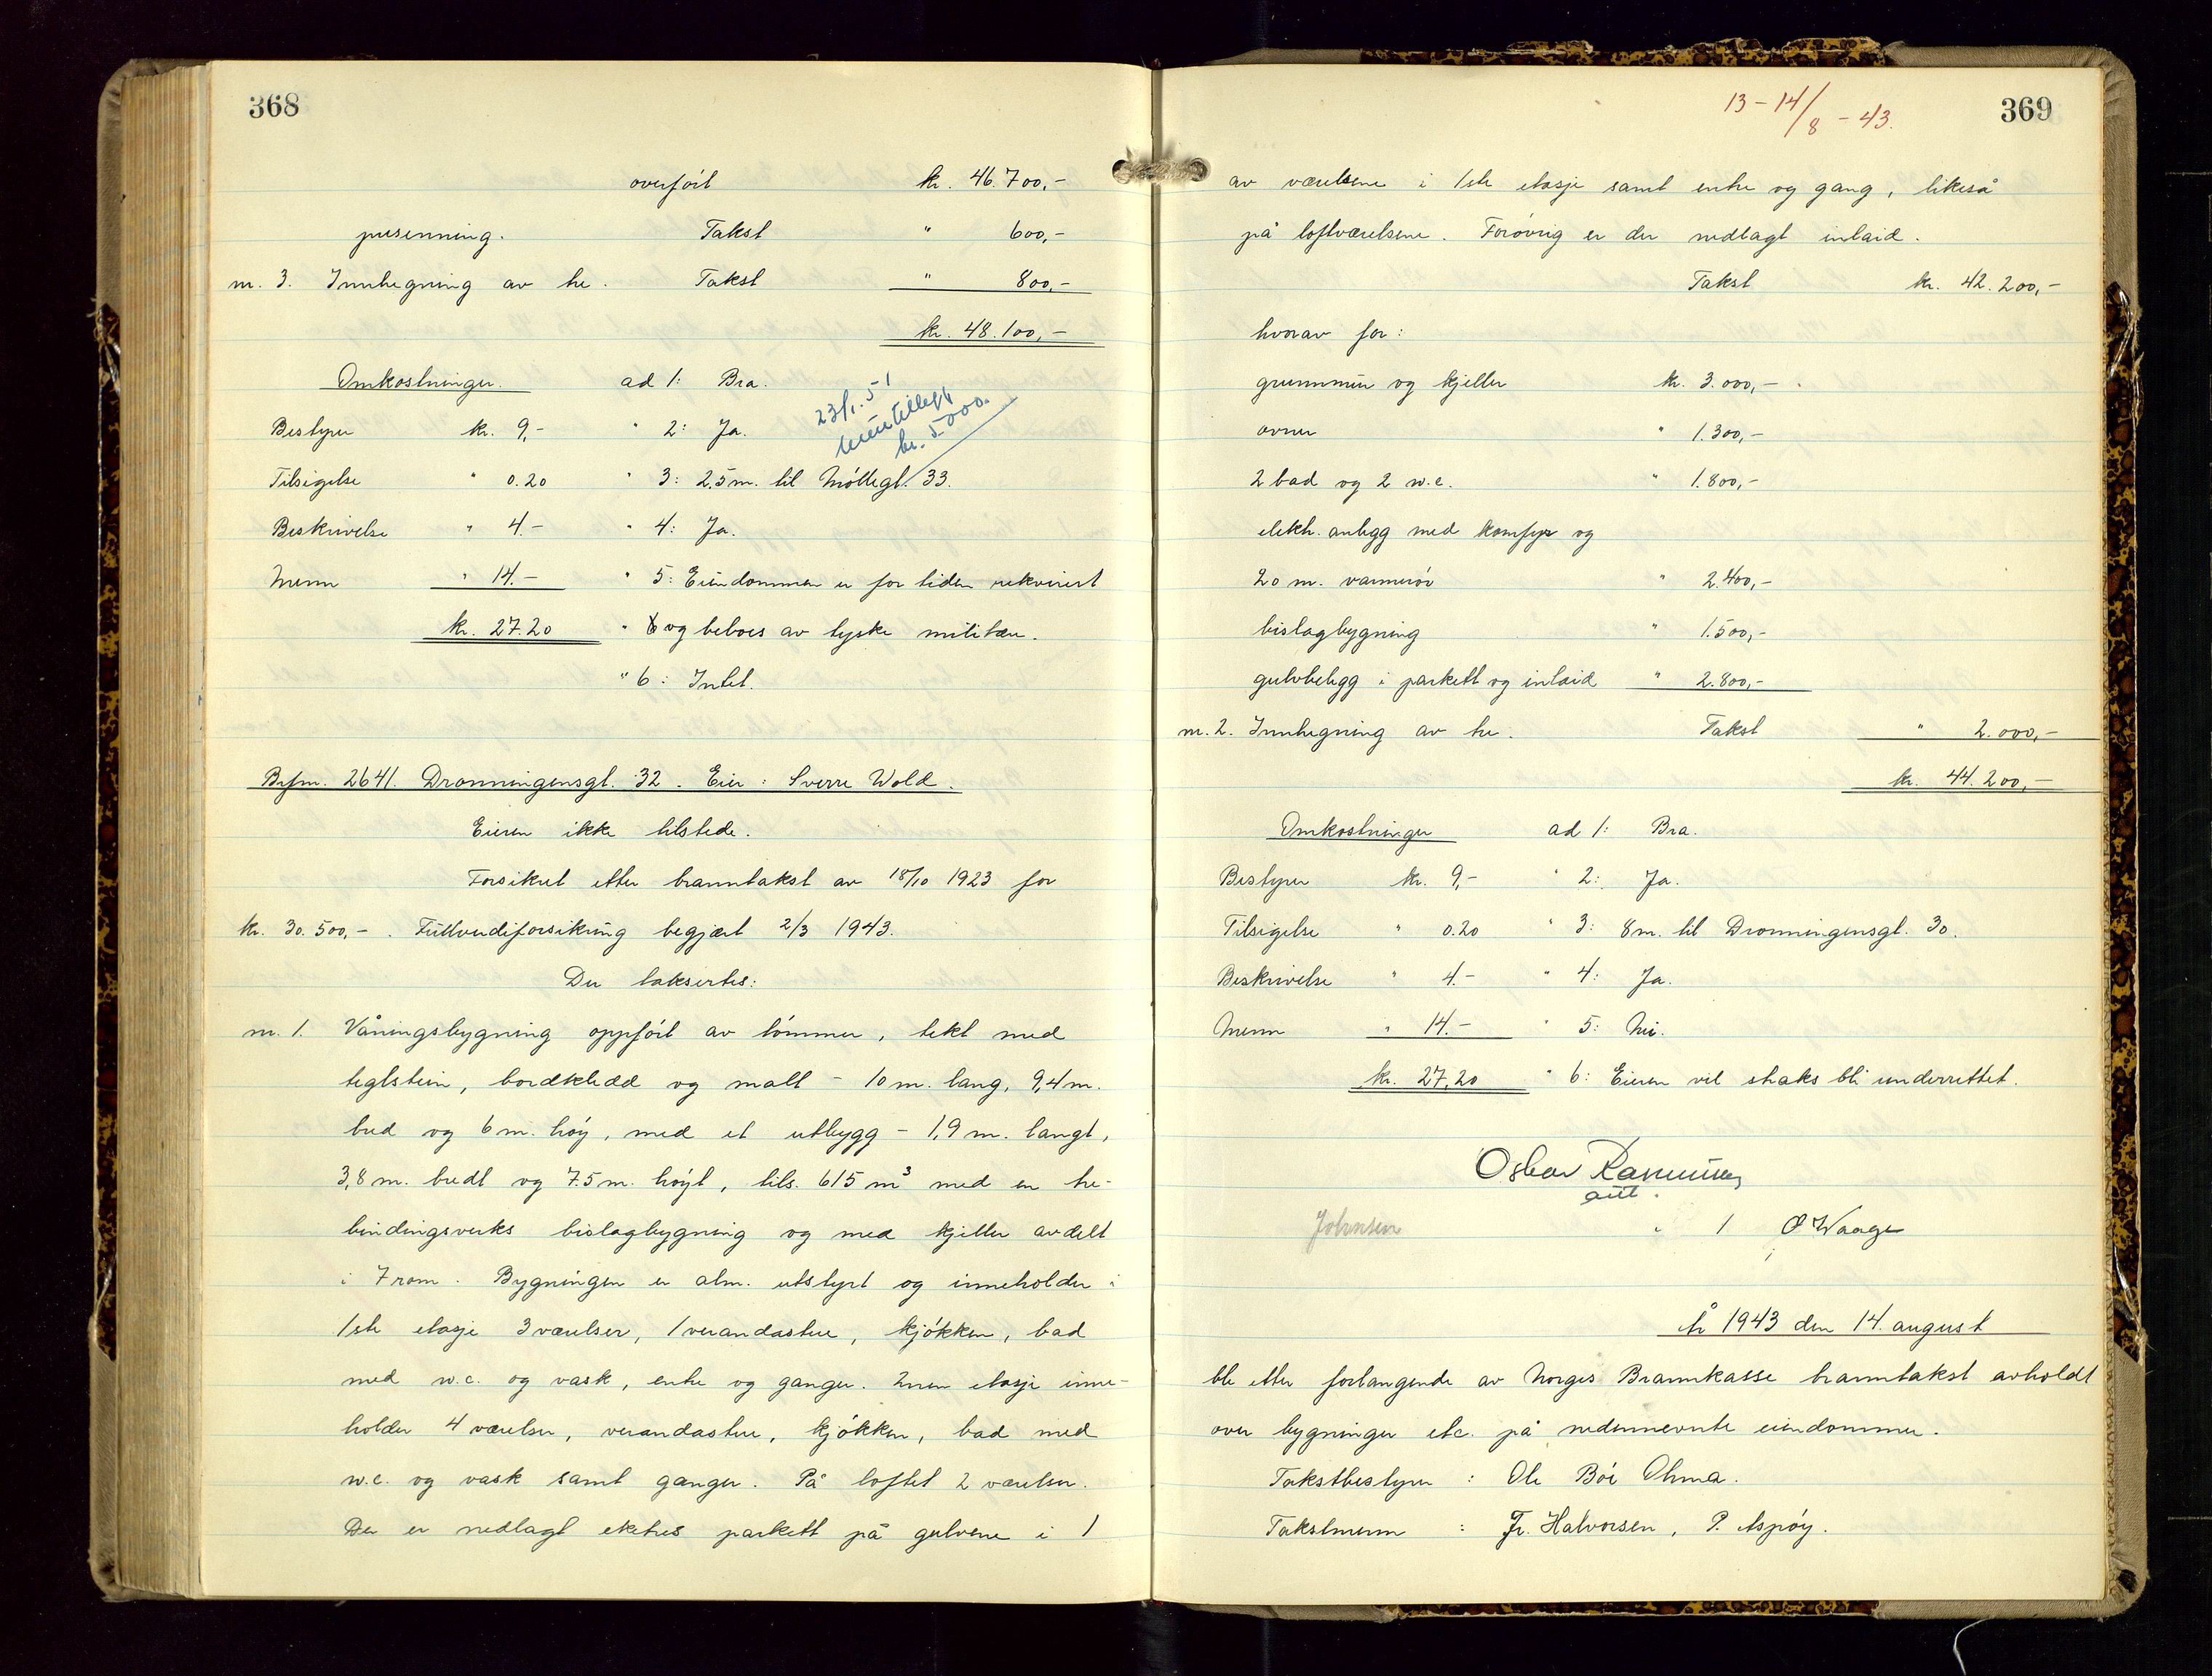 368
overført kr. 46.700,-
presenning. Takst " 600,-
nr. 3. Innhegning av tre. Takst " 800,-
kr. 48.100,-
Omkostninger. ad 1: Bra.
23/1. 51
kr. 5000.
Bestyrer kr. 9,- " 2: Ja.
Tilsigelse " 0.20 " 3: 2.5 m. til Møllegt. 33.
Beskrivelse " 4.- " 4: Ja.
Menn " 14.- " 5: Eiendommen er for tiden rekvirert
kr. 27.20 " og beboes av tyske militære.
" 6: Intet.
Brfnr. 2641. Dronningensgt. 32. Eier: Sverre Wold.
Eieren ikke tilstede.
Forsikret etter branntakst av 18/10 1923 for
kr. 30.500,-. Fullverdiforsikring begjært 2/3 1943.
Der taksertes:
nr. 1. Våningsbygning oppført av tømmer, tekt med
teglstein, bordkledd og malt - 10 m. lang, 9,4 m.
bred og 6 m. høy, med et utbygg - 1,9 m. langt,
3,8 m. bredt og 7.5 m. høyt, tils. 615 m³ med en tre-
bindingsverks bislagbygning og med kjeller avdelt
i 7 rom. Bygningen er alm. utstyrt og inneholder i
1ste etasje 3 værelser, 1 verandastue, kjøkken, bad
med w.c. og vask, entre og ganger. 2nen etasje inne-
holder 4 værelser, verandastue, kjøkken, bad med
w.c. og vask samt ganger. På loftet 2 værelser.
Der er nedlagt eketres parkett på gulvene i 1
13-14/8 - 43.
369
av værelsene i 1ste etasje samt entre og gang, likeså
på loftværelsene. Forøvrig er der nedlagt inlaid.
Takst kr. 42.200,-
hvorav for:
grunnmur og kjeller kr. 3.000,-
ovner " 1.300,-
2 bad og 2 w.c. " 1.800,-
elektr. anlegg med komfyr og
20 m. varmerør " 2.400,-
bislagbygning " 1.500,-
gulvbelegg i parkett og inlaid " 2.800,-
nr. 2. Innhegning av tre. Takst " 2.000,-
kr. 44.200,-
Omkostninger ad 1: Bra.
Bestyrer kr. 9,- " 2: Ja.
Tilsigelse " 0.20 " 3: 8 m. til Dronningensgt. 30.
Beskrivelse " 4.- " 4: Ja.
Menn " 14.- " 5: Nei.
kr. 27,20 " 6: Eieren vil straks bli underrettet.
Oskar Rasmussen
Johnsen O Waage
År 1943 den 14. august
ble etter forlangende av Norges Brannkasse branntakst avholdt
over bygninger etc. på nedennevnte eiendommer.
Takstbestyrer : Ole Bøe Ohma.
Takstmenn : Fr. Halvorsen, P. Aspøy.